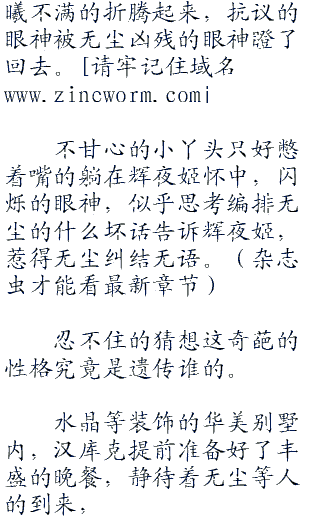 曦不满的折腾起来，抗议的
眼神被无尘凶残的眼神瞪了
回去。[请牢记住域名
www.zincworm.com|
不甘心的小丫头只好憋
着嘴的躺在辉夜姬怀中，闪
烁的眼神，似乎思考编排无
尘的什么坏话告诉辉夜姬，
惹得无尘纠结无语。（杂志
虫才能看最新章节）
忍不住的猜想这奇葩的
性格究竟是遗传谁的。
水晶等装饰的华美别墅
内，汉库克提前准备好了丰
盛的晚餐，静待着无尘等人
的到来，